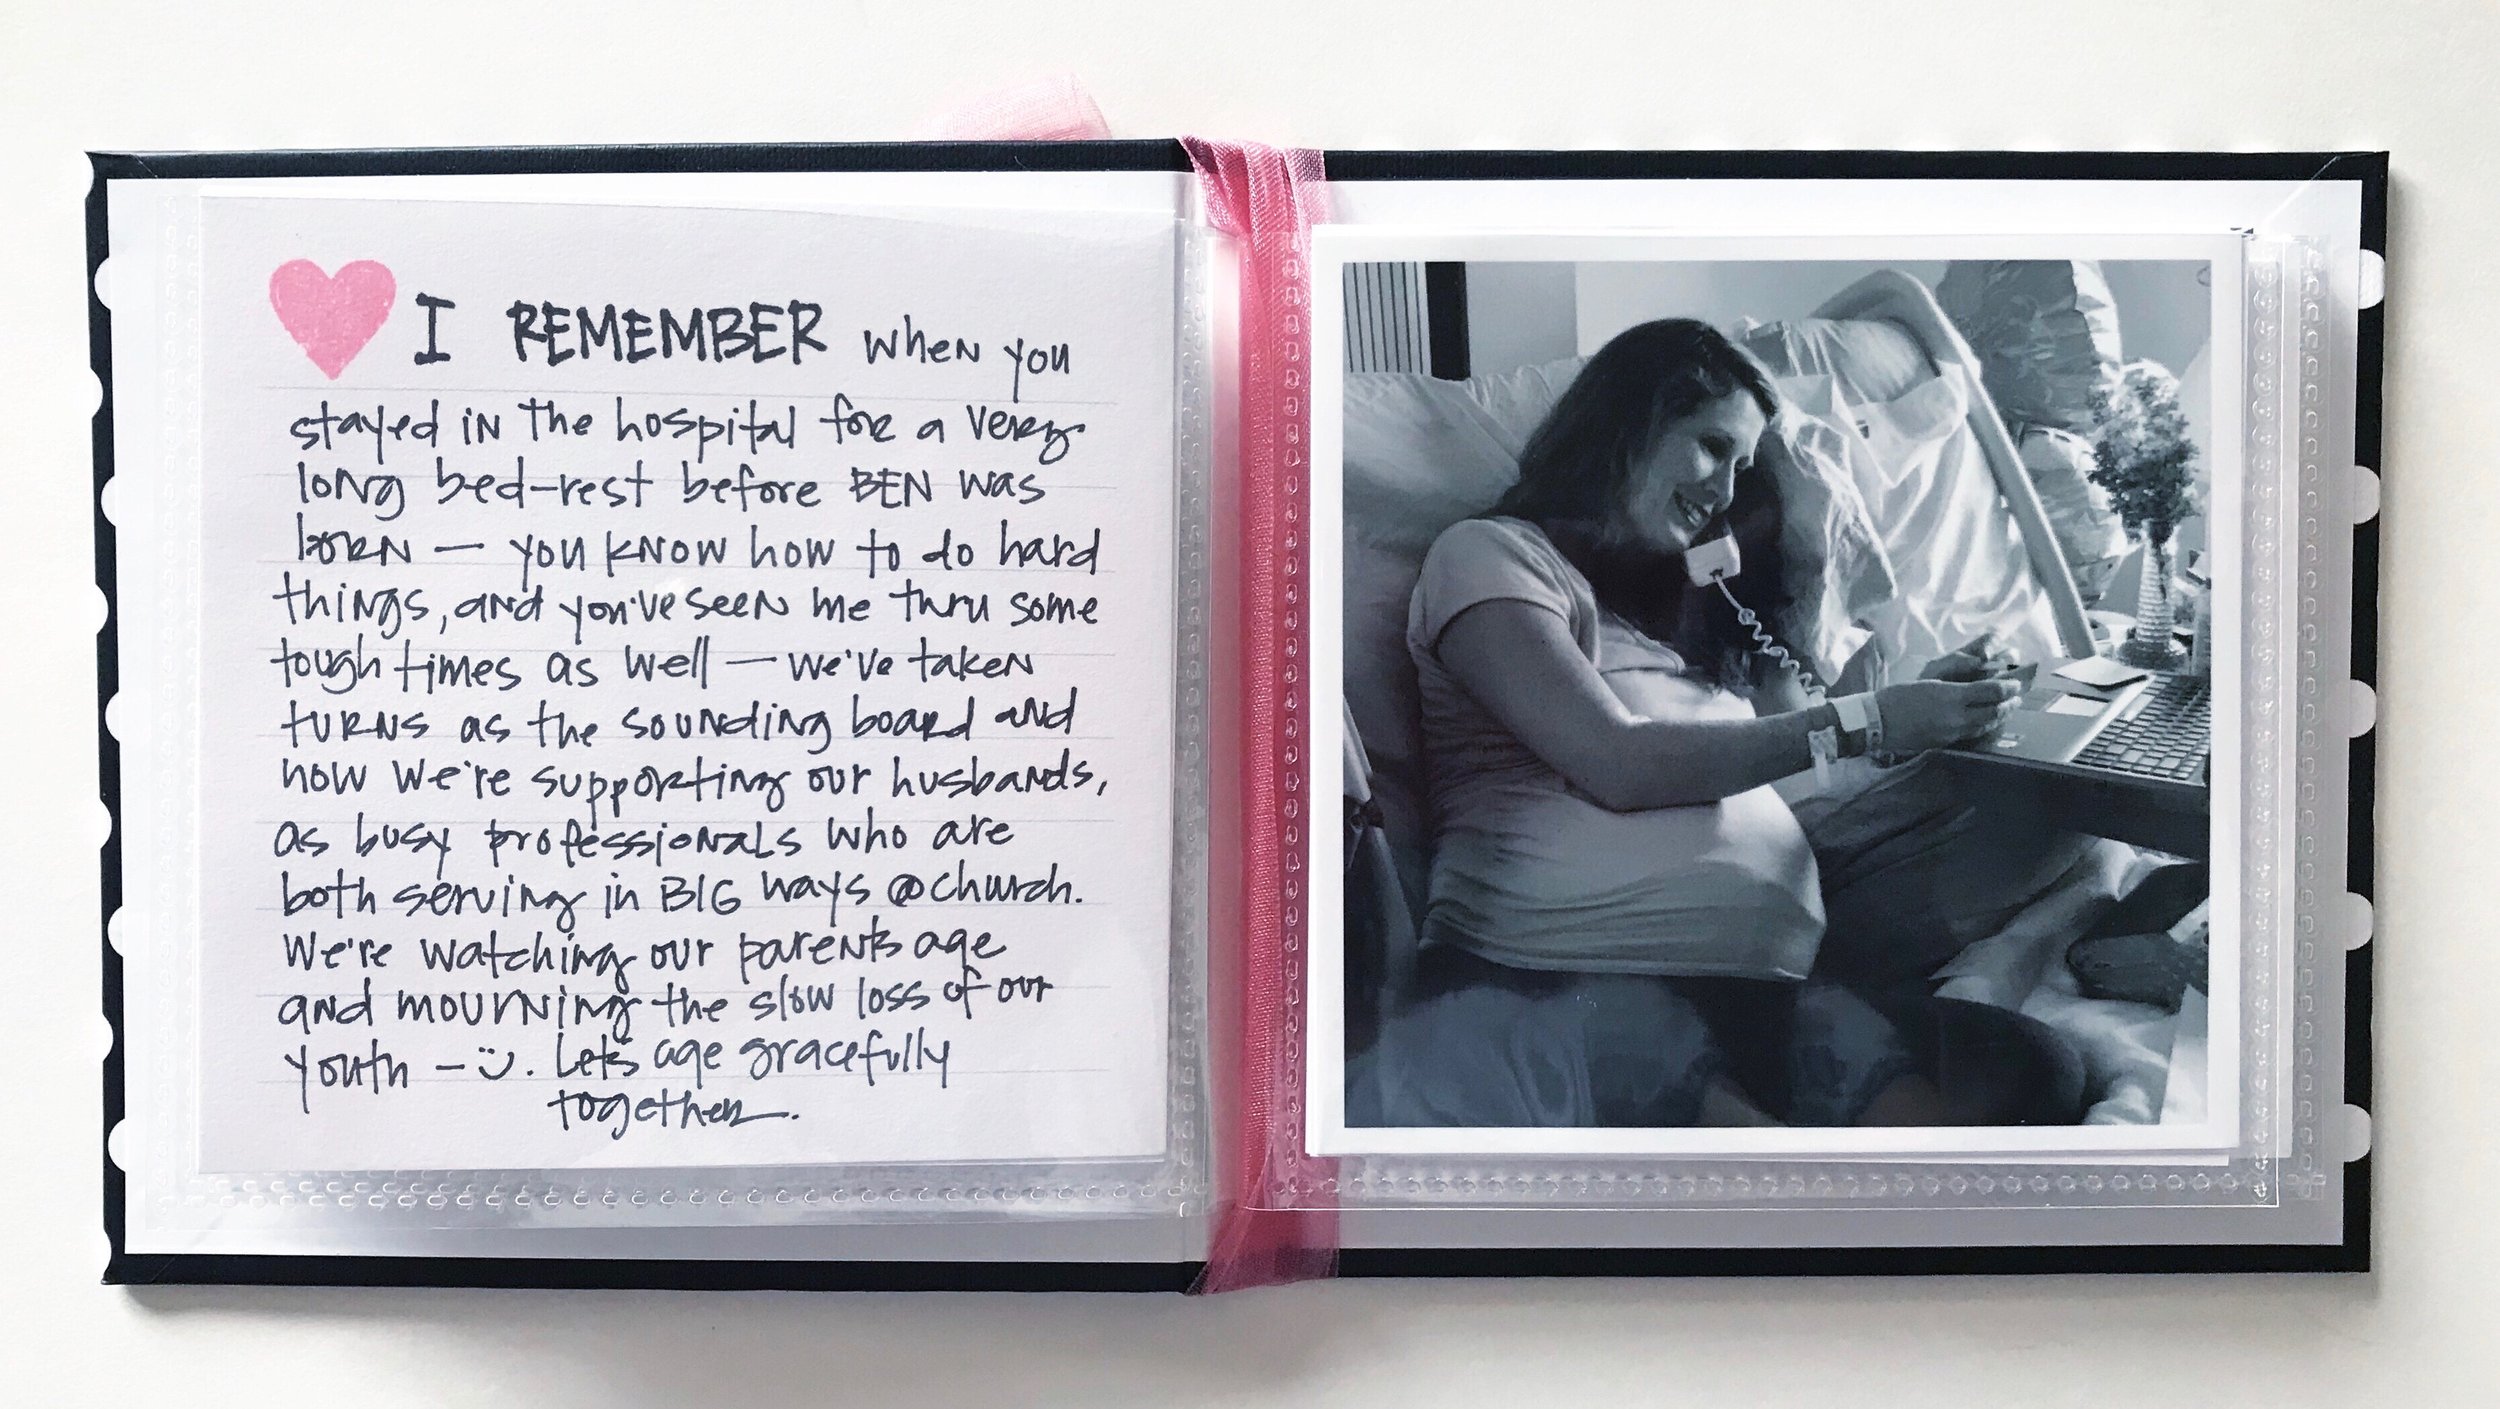 I REMEMBER when you
stayed in the hospital for a very
long bed-rest before BEN was
born — you know how to do hard
things, and you've seen me thru some
tough times as well — we've taken
turns as the sounding board and
now we're supporting our husbands,
as busy professionals who are
both serving in BIG ways @church.
We're watching our parents age
and mourning the slow loss of our
youth – :). Let's age gracefully
together.